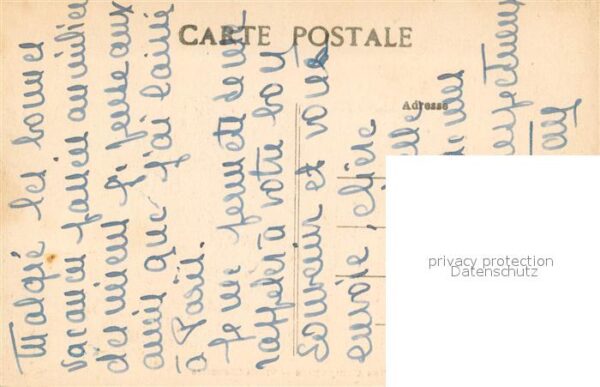 CARTE POSTALE
Adresse
Malgré les bonnes
vacances passées au milieu
des miens je pense aux
amis que j'ai laissé
à Paris.
Je me permets de me
rappeler à votre bon
souvenir et vous
envoie, chère
elle
mes
respectueux
privacy protection
Datenschutz